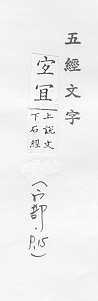 五經文字
宐宜
上説文
下石經
(宀部.P.15)